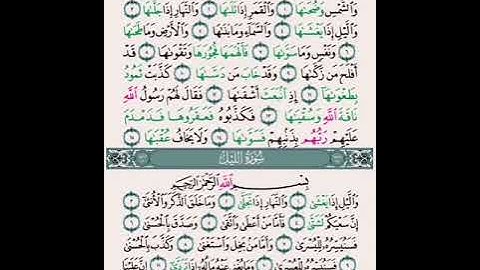 وَالشَّمْسِ وَضُحَىٰهَا ١ وَالْقَمَرِ إِذَا تَلَىٰهَا ٢ وَالنَّهَارِ إِذَا جَلَّىٰهَا ٣
وَالَّيْلِ إِذَا يَغْشَىٰهَا ٤ وَالسَّمَآءِ وَمَا بَنَىٰهَا ٥ وَالْأَرْضِ وَمَا طَحَىٰهَا
٦ وَنَفْسٍ وَمَا سَوَّىٰهَا ٧ فَأَلْهَمَهَا فُجُورَهَا وَتَقْوَىٰهَا ٨ قَدْ
أَفْلَحَ مَن زَكَّىٰهَا ٩ وَقَدْ خَابَ مَن دَسَّىٰهَا ١٠ كَذَّبَتْ ثَمُودُ
بِطَغْوَىٰهَآ ١١ إِذِ انۢبَعَثَ أَشْقَىٰهَا ١٢ فَقَالَ لَهُمْ رَسُولُ اللَّهِ
نَاقَةَ اللَّهِ وَسُقْيَىٰهَا ١٣ فَكَذَّبُوهُ فَعَقَرُوهَا فَدَمْدَمَ
عَلَيْهِمْ رَبُّهُم بِذَنۢبِهِمْ فَسَوَّىٰهَا ١٤ وَلَا يَخَافُ عُقْبَىٰهَا ١٥
سُورَةُ اللَّيْلِ
بِسْمِ اللَّهِ الرَّحْمَٰنِ الرَّحِيمِ
وَالَّيْلِ إِذَا يَغْشَىٰ ١ وَالنَّهَارِ إِذَا تَجَلَّىٰ ٢ وَمَا خَلَقَ الذَّكَرَ وَالْأُنثَىٰٓ ٣
إِنَّ سَعْيَكُمْ لَشَتَّىٰ ٤ فَأَمَّا مَنْ أَعْطَىٰ وَاتَّقَىٰ ٥ وَصَدَّقَ بِالْحُسْنَىٰ ٦
فَسَنُيَسِّرُهُ لِلْيُسْرَىٰ ٧ وَأَمَّا مَنۢ بَخِلَ وَاسْتَغْنَىٰ ٨ وَكَذَّبَ بِالْحُسْنَىٰ
٩ فَسَنُيَسِّرُهُ لِلْعُسْرَىٰ ١٠ وَمَا يُغْنِي عَنْهُ مَالُهُ إِذَا تَرَدَّىٰٓ ١١ إِنَّ عَلَيْنَا